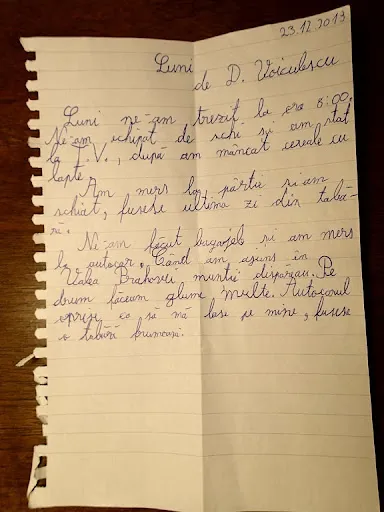 23.12.2013
Luni
de D. Voiculescu
Luni ne-am trezit la ora 8:00.
Ne-am echipat de schi și am stat
la T.V., după am mâncat cereale cu
lapte.
Am mers la pârtie și am
schiat, fusese ultima zi din tabă-
ră.
Ne-am făcut bagajele și am mers
la autocar. Când am ajuns în
Valea Prahovei, munții dispăreau. Pe
drum făceam glume multe. Autocarul
oprise ca să mă lase pe mine, fusese
o tabără frumoasă.